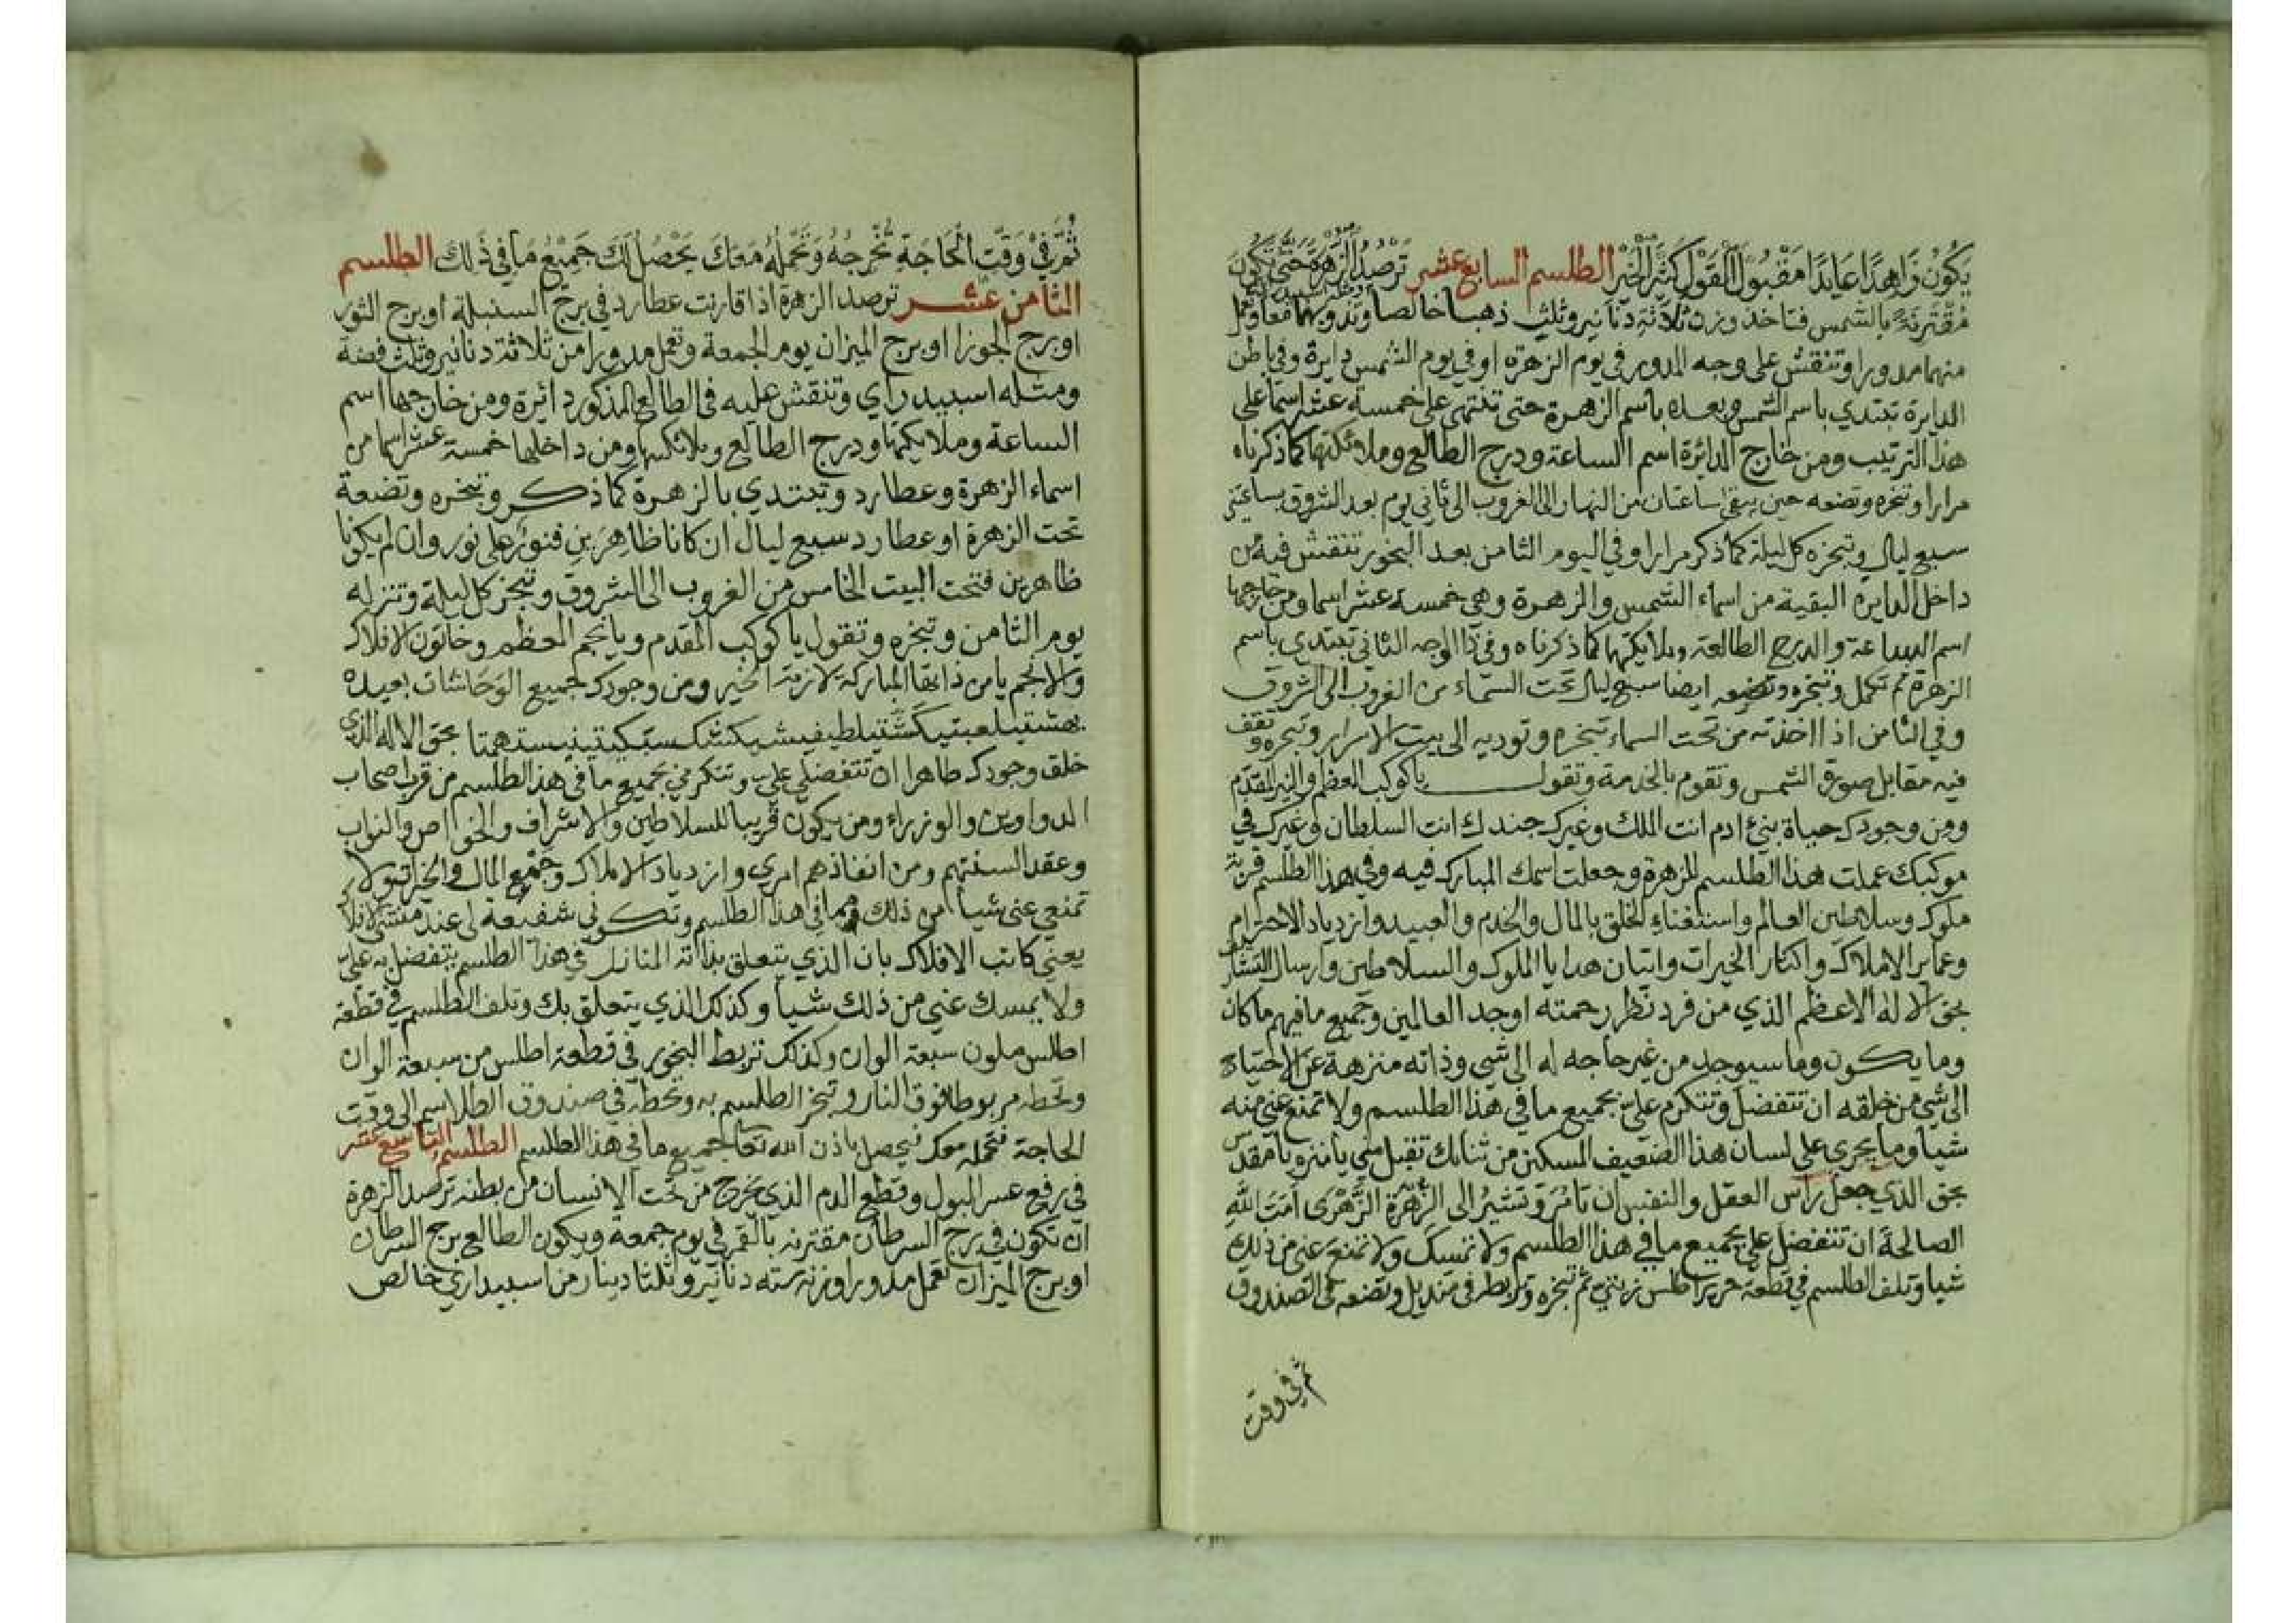 يَكُوْنُ زَاهِدًا عَابِدًا مَقْبُوْلَ القَوْلِ كَثِيْرَ الخَيْرِ الطلسم السابع عشر تَرْصُدُ الزُّهْرَةَ حَتَّى تَكُوْنَ
مُقْتَرِنَةً بالشمس فتاخذ وزن ثلاثة دنانير وثلث ذهبا خالصا وتذوبهما معا وتعمل
منهما مدورا وتنقش على وجه المدور في يوم الزهرة او في يوم الشمس دايرة وفي باطن
الدايرة تبتدي باسم الشمس وبعده باسم الزهرة حتى تنتهي على خمسة عشر اسما على
هذا الترتيب ومن خارج الدائرة اسم الساعة ودرج الطالع وملائكتها كما ذكرناه
مرارا وتبخره وتضعه حين يبقى ساعتان من النهار الى الغروب الى ثاني يوم بعد الشروق بساعتين
سبع ليال وتبخره كل ليلة كما ذكر مرارا وفي اليوم الثامن بعد البخور تنقش فيه من
داخل الدايرة البقية من اسماء الشمس والزهرة وهي خمسة عشر اسما ومن خارجها
اسم الساعة والدرج الطالعة وملايكتها كما ذكرناه وفي ذا الوجه الثاني تبتدي باسم
الزهرة ثم تكمل وتبخره وتضعه ايضا سبع ليال تحت السماء من الغروب الى الشروق
وفي الثامن اذا اخذته من تحت السماء تبخره وتوديه الى بيت الاسرار وتبخره وتقف
فيه مقابل صورة الشمس وتقوم بالخدمة وتقول يا كوكب العظم والنير المقدم
ومن وجودك حياة بني ادم انت الملك وغيرك جندك انت السلطان وغيرك في
موكبك عملت هذا الطلسم للزهرة وجعلت اسمك المبارك فيه وفي هذا الطلسم قربة
ملوك وسلاطين العالم واستغناء الخلق بالمال والخدم والعبيد وازدياد الاحترام
وعماير الاملاك واكثار الخيرات واتيان هدايا الملوك والسلاطين وارسال
بحق الاله الاعظم الذي من فرد نظر رحمته اوجد العالمين وجميع ما فيهم ما كان
وما يكون وما سيوجد من غير حاجه له الى شي وذاته منزهة عن الاحتياج
الى شي من خلقه ان تتفضل وتتكرم علي بجميع ما في هذا الطلسم ولا تمنع عني منه
شيا وما يجري على لسان هذا الضعيف المسكين من ثنائك تقبل مني يا منزه يا مقدس
بحق الذي جعل راس العقل والنفس ان تَامُرَ وتَشيْرُ الى الزُّهْرَةِ الزَّهْرَى اَمَتَ اللهِ
الصالحة ان تتفضل علي بجميع ما في هذا الطلسم ولا تمسك ولا تمنع عني من ذلك
شيا وتلف الطلسم في قطعة حرير اطلس ثم تبخره وتربط في منديل وتضعه في الصندوق
ثم في وقت
ثُمَّ فِيْ وَقْتِ الْحَاجَةِ تُخْرِجُهُ وَتَحْمِلُهُ مَعَكَ يَحْصُلُ لَكَ جَمِيْعُ مَا في ذَلِكَ الطلسم
الثامن عشر ترصد الزهرة اذا قارنت عطارد في برج السنبلة او برج الثور
او برج الجوزا او برج الميزان يوم الجمعة وتعمل مدورا من ثلاثة دنانير وثلث فضة
ومثله اسبيدراي وتنقش عليه في الطالع المذكور دائرة ومن خارجها اسم
الساعة وملايكتها ودرج الطالع وملائكتها ومن داخلها خمسة عشر اسما من
اسماء الزهرة وعطارد وتبتدي بالزهرة كما ذكر وتبخره وتضعة
تحت الزهرة او عطارد سبع ليال ان كانا ظاهِرَيْنِ فنور على نور وان لم يكونا
ظاهرين فتحت البيت الخامس من الغروب الى الشروق وتبخر كل ليلة وتنزله
يوم الثامن وتبخره وتقول يا كوكب المقدم ويا نجم العظم وخاتون الافلاك
والانجم يا من ذاتها المباركة لازمة الخير ومن وجودك جميع الوحاشات بعيده
بحق الاله الذي
خلق وجودك طاهرا ان تتفضلي علي وتتكرمي بجميع ما في هذا الطلسم من قرب اصحاب
الدواوين والوزراء ومن يكون قريبا للسلاطين والاشراف والخواص والنواب
وعقد السنتهم ومن انفاذهم امري وازدياد الاملاك وجمع المال والخيرات ولا
تمنعي عني شيأ من ذلك مما في هذا الطلسم وتكوني شفيعة لي عند منشي الافلاك
يعني كاتب الافلاك بان الذي يتعلق بذاته المنازل في هذا الطلسم يتفضل به علي
ولا يمسك عني من ذلك شيأ وكذلك الذي يتعلق بك وتلف الطلسم في قطعة
اطلس ملون سبعة الوان وكذلك تربط البخور في قطعة اطلس من سبعة الوان
وتحطه مربوطا فوق النار وتبخر الطلسم به وتحطه في صندوق الطلاسم الى وقت
الحاجة فتحمله معك فيحصل باذن الله تعا جميع ما في هذا الطلسم الطلسم التاسع عشر
في رفع عسر البول وقطع الدم الذي يخرج من تحت الانسان من بطنه ترصد الزهرة
ان تكون في برج السرطان مقترنه بالقمر في يوم جمعة ويكون الطالع برج السرطان
او برج الميزان تعمل مدورا وزنه سته دنانير وثلثا دينار من اسبيداري خالص